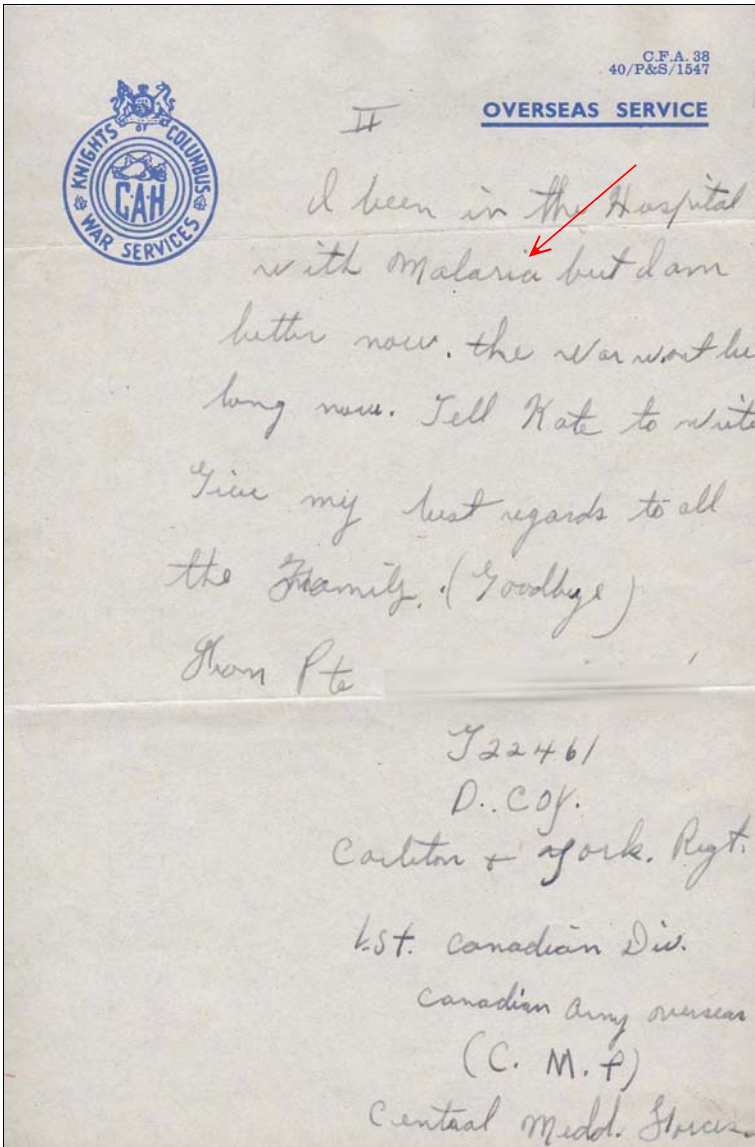 C.F.A. 38
40/P&S/1547
OVERSEAS SERVICE
KNIGHTS OF COLUMBUS
C.A.H
WAR SERVICES
II
I been in the Hospital
with Malaria but I am
better now. the War wont be
long now. Tell Kate to write
Give my best regards to all
the Family. (Goodbye)
From Pte
D. Coy.
Carleton + York. Regt.
1.st. Canadian Div.
Canadian Army overseas
(C. M. F)
Central Medd. Forces.